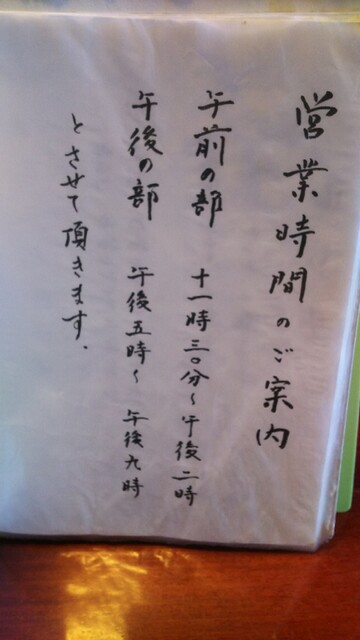 営業時間のご案内
午前の部 十一時三〇分～午後二時
午後の部 午後五時～午後九時
とさせて頂きます.